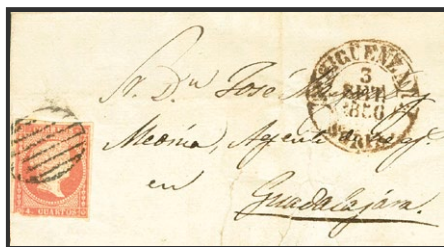 SIGÜENZA
3
SET
1856
Sr. Dn José
Medina, Agente
en
Guadalajara.
4 CUARTOS